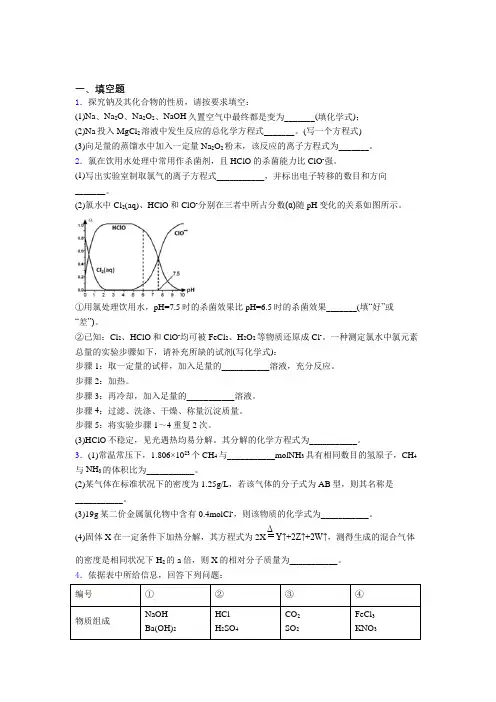 一、填空题
1．探究钠及其化合物的性质，请按要求填空：
(1)Na、Na₂O、Na₂O₂、NaOH 久置空气中最终都是变为_______(填化学式)；
(2)Na 投入 MgCl₂ 溶液中发生反应的总化学方程式_______。(写一个方程式)
(3)向足量的蒸馏水中加入一定量 Na₂O₂ 粉末，该反应的离子方程式为_______。
2．氯在饮用水处理中常用作杀菌剂，且 HClO 的杀菌能力比 ClO⁻强。
(1)写出实验室制取氯气的离子方程式___________，并标出电子转移的数目和方向
_______。
(2)氯水中 Cl₂(aq)、HClO 和 ClO⁻分别在三者中所占分数(α)随 pH 变化的关系如图所示。
α
1.0
0.8
0.6
0.4
0.2
0.0
HClO
ClO⁻
Cl₂(aq)
7.5
0 1 2 3 4 5 6 7 8 9 10 pH
①用氯处理饮用水，pH=7.5 时的杀菌效果比 pH=6.5 时的杀菌效果_______(填“好”或
“差”)。
②已知：Cl₂、HClO 和 ClO⁻均可被 FeCl₂、H₂O₂ 等物质还原成 Cl⁻。一种测定氯水中氯元素
总量的实验步骤如下，请补充所缺的试剂(写化学式)：
步骤 1：取一定量的试样，加入足量的___________溶液，充分反应。
步骤 2：加热。
步骤 3：再冷却，加入足量的___________溶液。
步骤 4：过滤、洗涤、干燥、称量沉淀质量。
步骤 5：将实验步骤 1～4 重复 2 次。
(3)HClO 不稳定，见光遇热均易分解。其分解的化学方程式为___________。
3．(1)常温常压下，1.806×10²³ 个 CH₄ 与___________molNH₃ 具有相同数目的氢原子，CH₄
与 NH₃ 的体积比为___________。
(2)某气体在标准状况下的密度为 1.25g/L，若该气体的分子式为 AB 型，则其名称是
___________。
(3)19g 某二价金属氯化物中含有 0.4molCl⁻，则该物质的化学式为___________。
(4)固体 X 在一定条件下加热分解，其方程式为 2X Δ= Y↑+2Z↑+2W↑，测得生成的混合气体
的密度是相同状况下 H₂ 的 a 倍，则 X 的相对分子质量为___________。
4．依据表中所给信息，回答下列问题：
编号 ① ② ③ ④
物质组成 NaOH HCl CO₂ FeCl₃
Ba(OH)₂ H₂SO₄ SO₂ KNO₃